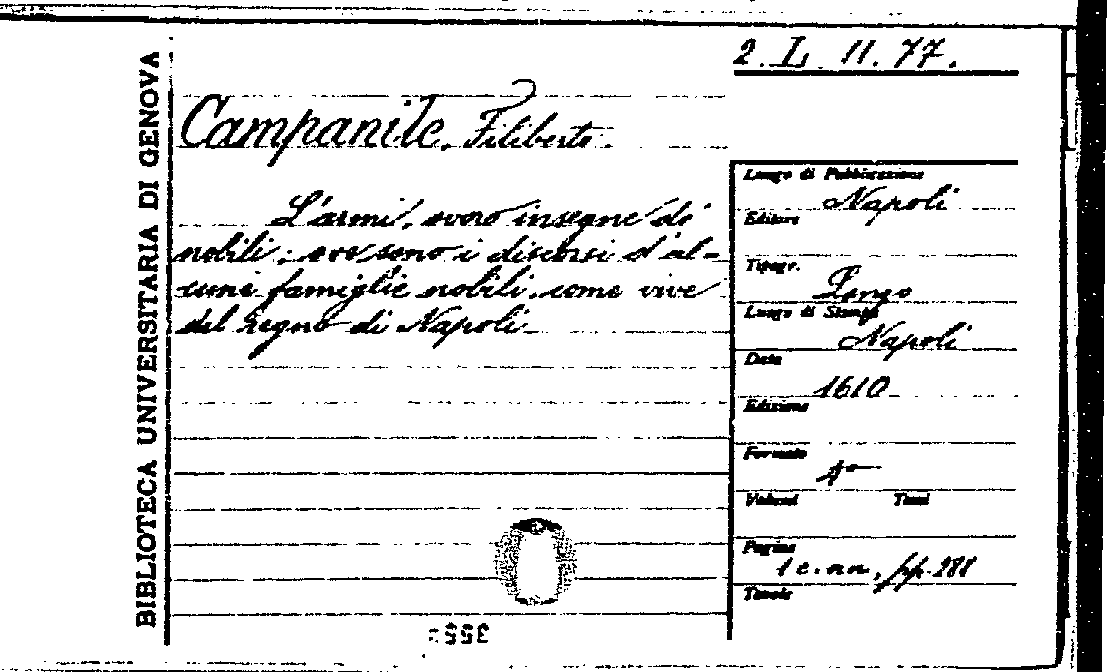 BIBLIOTECA UNIVERSITARIA DI GENOVA
2. L. 11. 77.
Campanile, Filiberto.
L'armi, overo insegne de'
nobili; ove sono i discorsi d'al-
cune famiglie nobili, come vive
del Regno di Napoli
Luogo di Pubblicazione
Napoli
Editore
Tipogr.
Longo
Luogo di Stampa
Napoli
Data
1610
Edizione
Formato
4°
Volumi Tomi
Pagine
1 c. nn, pp. 288
Tavole